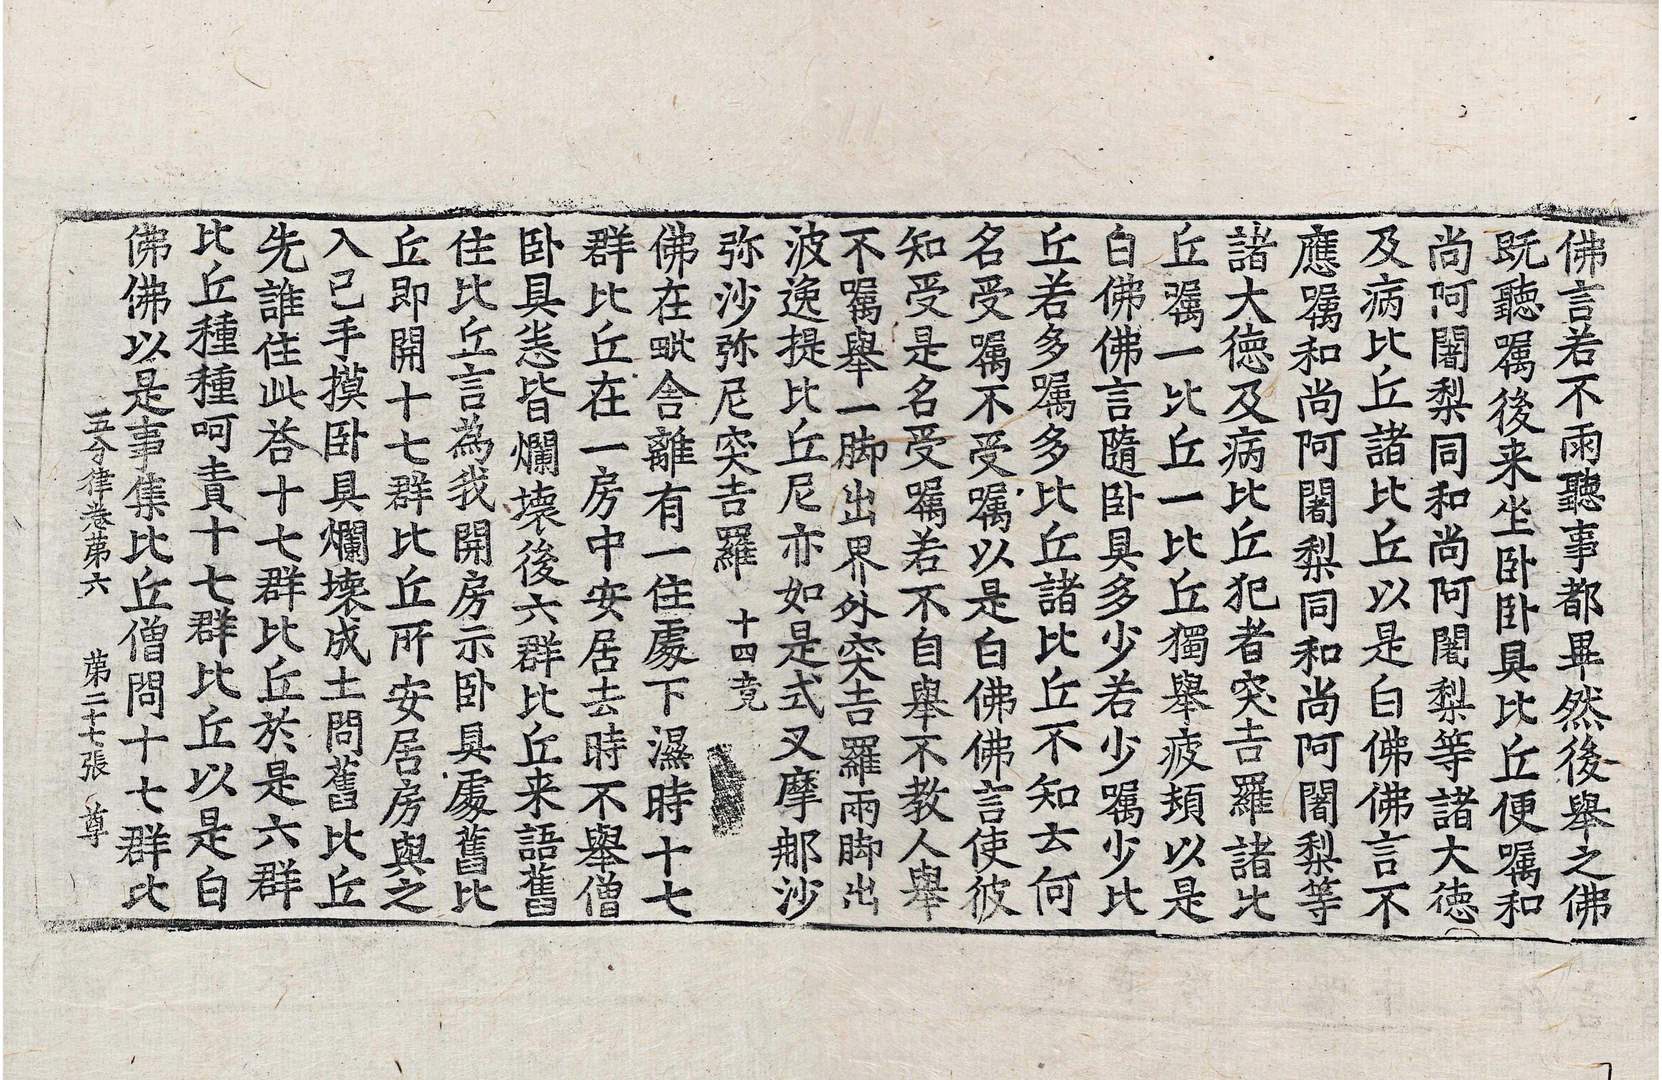 佛言若不雨聽事都畢然後舉之佛
既聽嘱後来坐卧卧具比丘便嘱和
尚阿闍梨同和尚阿闍梨等諸大徳
及病比丘諸比丘以是白佛佛言不
應嘱和尚阿闍梨同和尚阿闍梨等
諸大徳及病比丘犯者突吉羅諸比
丘嘱一比丘一比丘獨舉疲頓以是
白佛佛言隨卧具多少若少嘱少比
丘若多嘱多比丘諸比丘不知去何
名受嘱不受嘱以是白佛佛言使彼
知受是名受嘱若不自舉不教人舉
不嘱舉一脚出界外突吉羅兩脚出
波逸提比丘尼亦如是式叉摩那沙
弥沙弥尼突吉羅 十四竟
佛在毗舍離有一住處下濕時十七
群比丘在一房中安居去時不舉僧
卧具恙皆爛壞後六群比丘来語舊
住比丘言為我開房示卧具處舊比
丘即開十七群比丘所安居房與之
入已手摸卧具爛壞成土問舊比丘
先誰住此荅十七群比丘於是六群
比丘種種呵責十七群比丘以是白
佛佛以是事集比丘僧問十七群比
五分律卷第六 第二十七張 尊